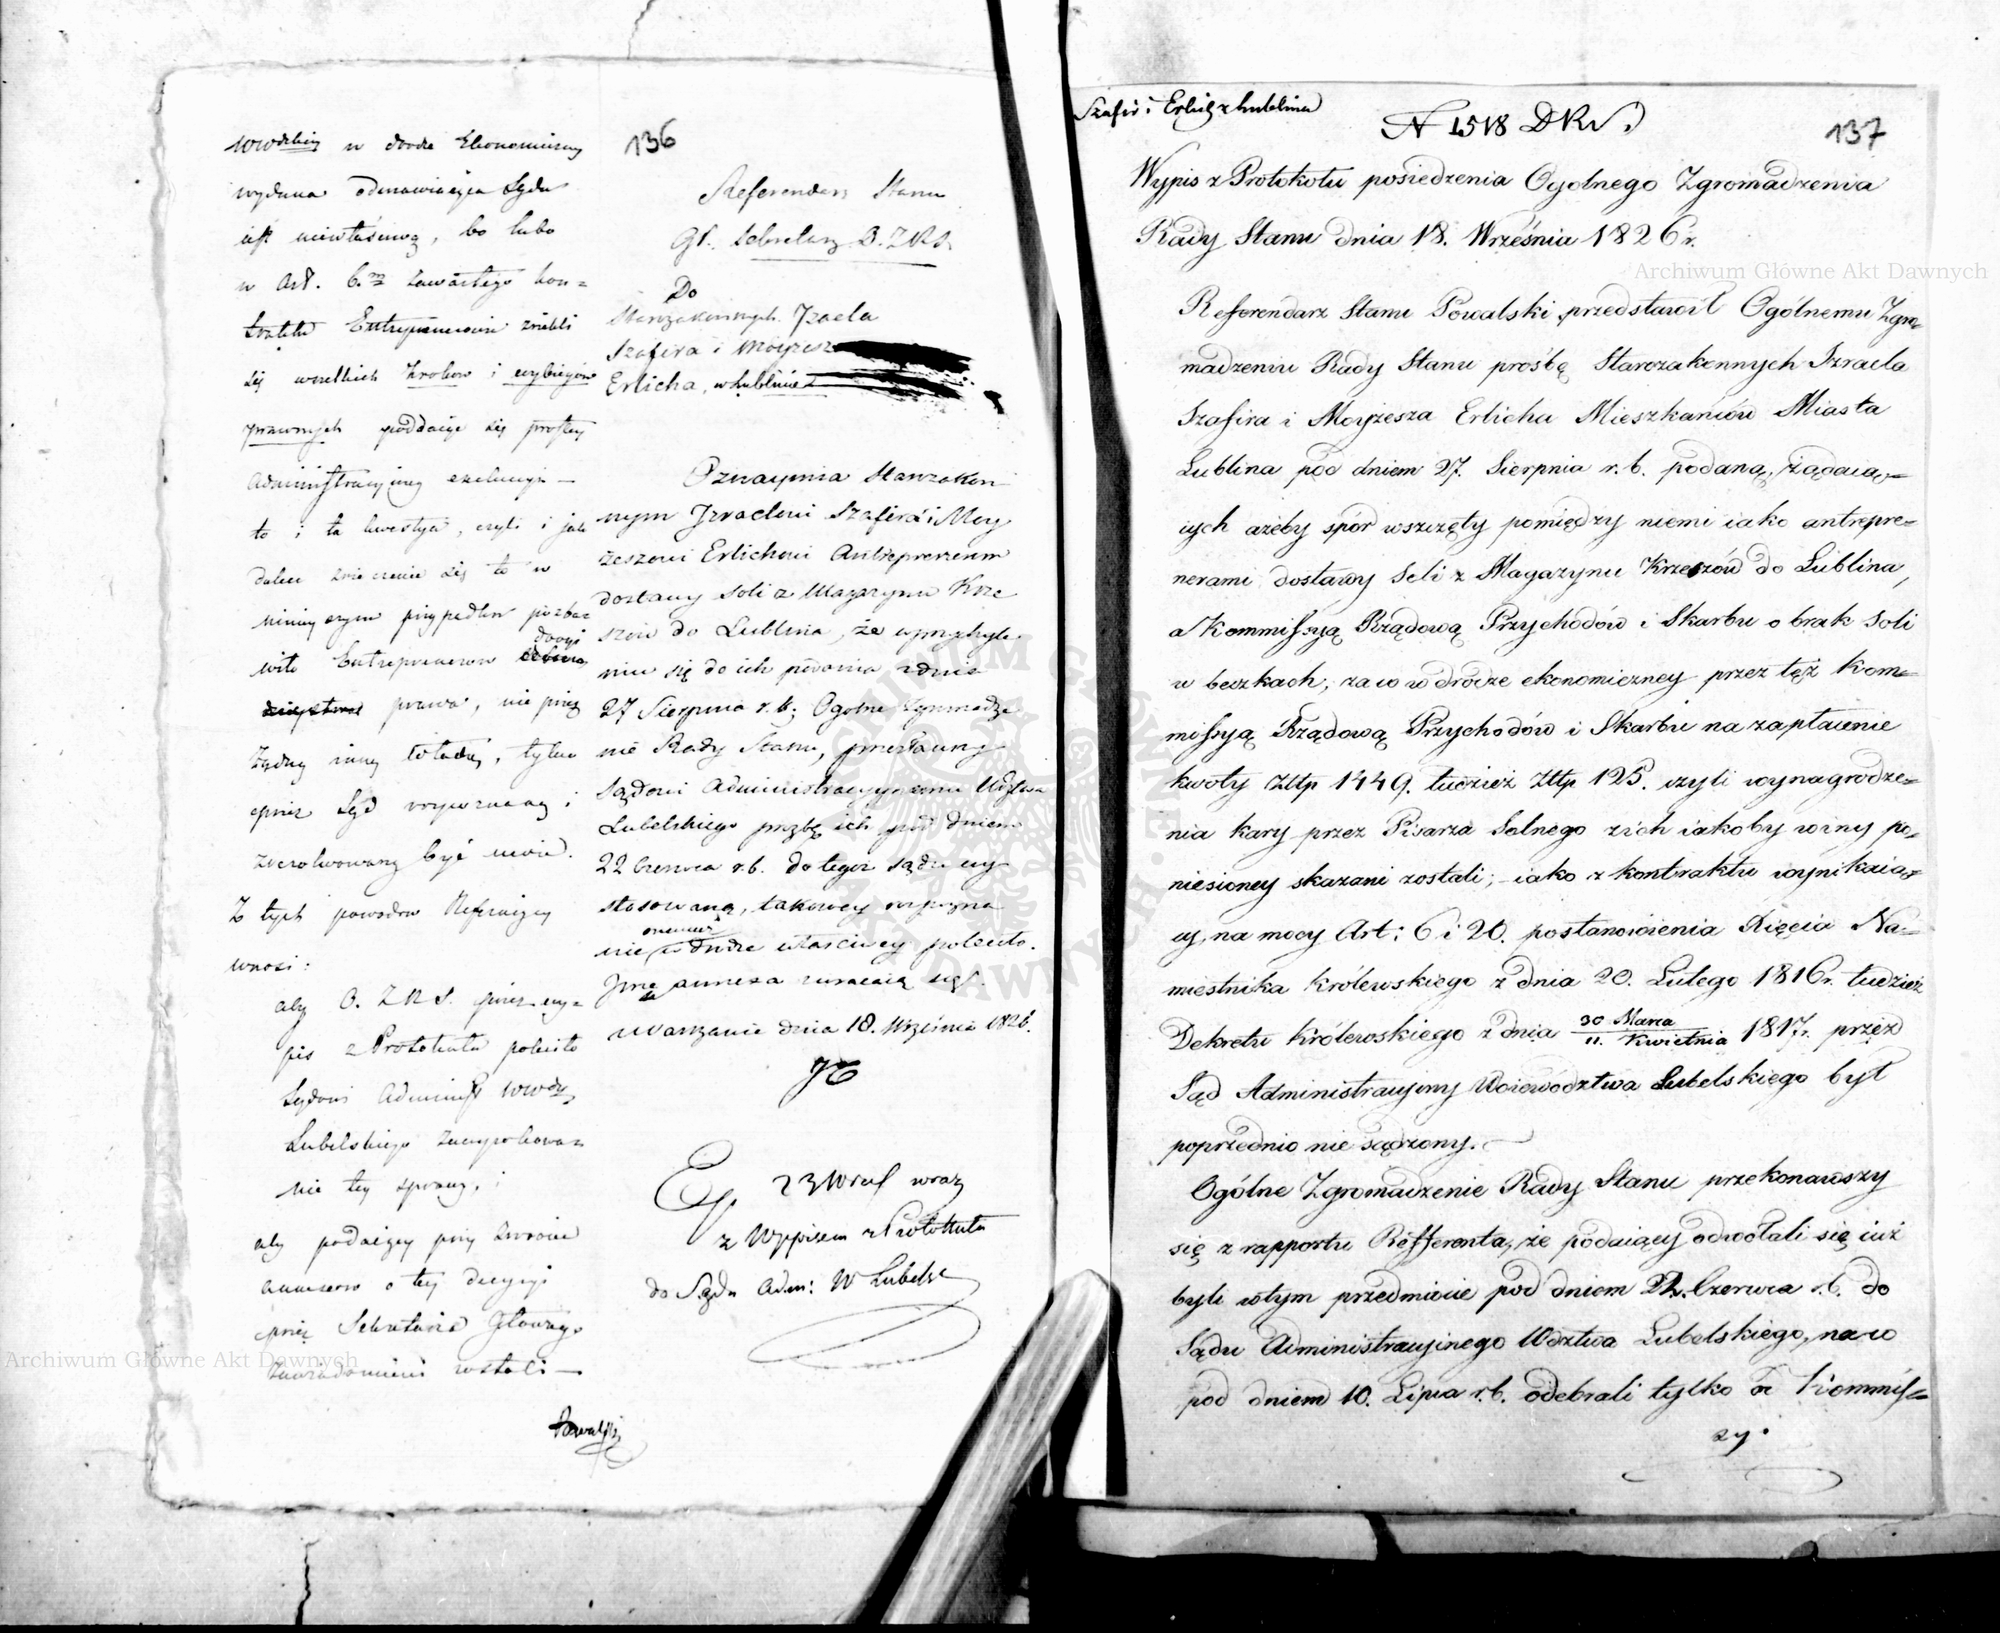 136
wwdzkiey w drodze Ekonomiczney
wydana odmawiaiąca Sądu
iest niewłaściwą, bo lubo
w Art. 6.m zawartego kon=
traktu Entreprenerowie zrzekli
się wszelkich kroków i wybiegów
prawnych poddaiąc się prostey
Administracyiney exekucyi —
to i ta kwestya, czyli i jak
daleo zrzeczenie się to w
ninieyszym przypadku pozba=
wiło Entreprenerow drogi
prawa, nie przez
żadną inną władzę, tylko
przez Sąd wyrzeczoną i
zrezolwowaną być może.
Z tych powodów Referuiący
wnosi:
aby O. Z R S. przez wy=
pis z Protokułu poleciło
Sądowi Administ Wwdz
Lubelskiego zawyrokowa=
nie tey sprawy, i
aby podaiący przy zwrocie
annexow o tey decyzyi
przez Sekretarza Głownego
zawiadomieni zostali —
Powalski
Referendarz Stanu
Gł. Sekretarz O. Z R S.
Do
Starozakonnych Izraela
Szafira i Moyżesza
Erlicha, w Lublinie
Oznaymia Starozakon
nym Izraelowi Szafira i Moy
żeszowi Erlichowi Antreprenerom
dostawy Soli z Magazynu Krze
szów do Lublina, że w przychyle
niu się do ich podania z dnia
27 Sierpnia r.b; Ogolne Zgromadze
nie Rady Stanu, przesławszy
Sądowi Administracyynemu Wdztwa
Lubelskiego prośbę ich pod dniem
22 Czerwca r.b. do tegoż Sądu wy
stosowaną, takowey rozpozna
nie w drodze właściwey poleciło.
Inne annexa zwracaią się.
w Warszawie dnia 18. Września 1826.
Ex 23 Wrześ wraz
z Wypisem z Protokułu
do Sądu Adm: W Lubelsk
Szafir i Erlich z Lublina
N 1518 DRS.
137
Wypis z Protokołu posiedzenia Ogolnego Zgromadzenia
Rady Stanu dnia 18. Września 1826r.
Referendarz Stanu Powalski przedstawił Ogólnemu Zgro=
madzeniu Rady Stanu prośbę Starozakonnych Izraela
Szafira i Moyżesza Erlicha Mieszkańców Miasta
Lublina pod dniem 27. Sierpnia r.b. podaną, żądaią=
cych ażeby spór wszczęty pomiędzy niemi iako antrepre=
nerami dostawy Soli z Magazynu Krzeszów do Lublina,
a Kommissyą Rządową Przychodów i Skarbu o brak Soli
w beczkach, za co w drodze ekonomiczney przez tęż Kom=
missyą Rządową Przychodów i Skarbu na zapłacenie
kwoty Złtp 1449. tudzież Złtp 125. czyli wynagrodze=
nia kary przez Pisarza Solnego z ich iakoby winy po=
niesioney skazani zostali; iako z kontraktu wynikaią=
cy, na mocy Art: 6 i 20. postanowienia Xięcia Na=
miestnika Królewskiego z dnia 20. Lutego 1816r. tudzież
Dekretu Królewskiego z dnia 30 Marca / 11. Kwietnia 1817r. przez
Sąd Administracyiny Woiewództwa Lubelskiego był
poprzednio nie sądzony.
Ogólne Zgromadzenie Rady Stanu przekonawszy
się z rapportu Refferenta, że podaiący odwołali się iuż
byli w tym przedmiocie pod dniem 22. Czerwca r.b. do
Sądu Administracyinego Wdztwa Lubelskiego, na co
pod dniem 10. Lipca r.b. odebrali tylko od Kommis=
sy